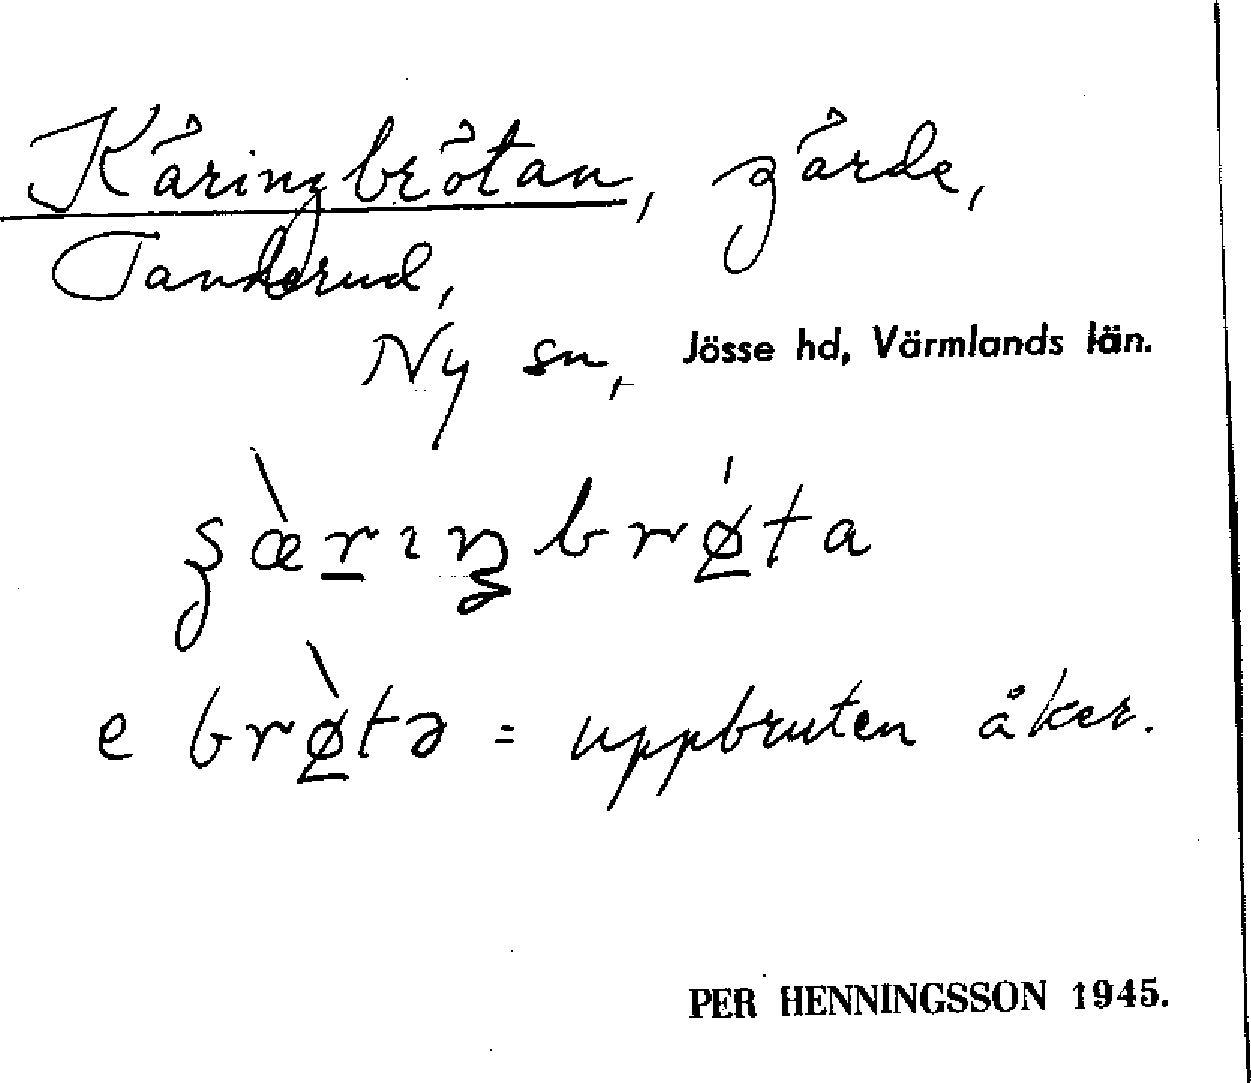 Käringbrötan, gärde,
Tanderud,
Ny sn, Jösse hd, Värmlands län.
e brø̀tə = uppbruten åker.
PER HENNINGSSON 1945.